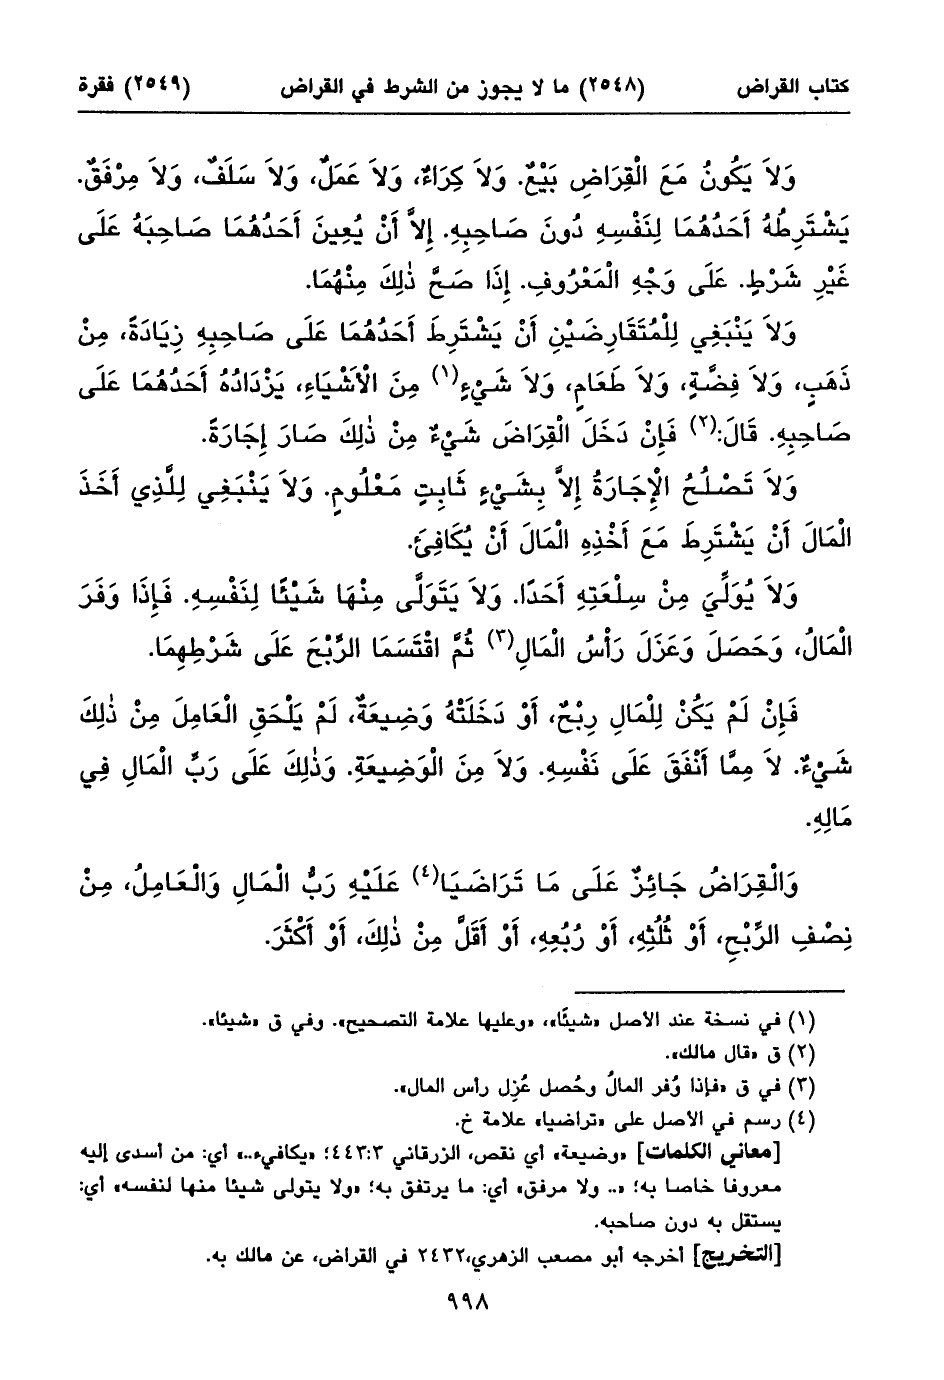 كتاب القراض (٢٥٤٨) ما لا يجوز من الشرط في القراض (٢٥٤٩) فقرة
وَلاَ يَكُونُ مَعَ الْقِرَاضِ بَيْعٌ. وَلاَ كِرَاءٌ، وَلاَ عَمَلٌ، وَلاَ سَلَفٌ، وَلاَ مِرْفَقٌ.
يَشْتَرِطُهُ أَحَدُهُمَا لِنَفْسِهِ دُونَ صَاحِبِهِ. إِلاَّ أَنْ يُعِينَ أَحَدُهُمَا صَاحِبَهُ عَلَى
غَيْرِ شَرْطٍ. عَلَى وَجْهِ الْمَعْرُوفِ. إِذَا صَحَّ ذٰلِكَ مِنْهُمَا.
وَلاَ يَنْبَغِي لِلْمُتَقَارِضَيْنِ أَنْ يَشْتَرِطَ أَحَدُهُمَا عَلَى صَاحِبِهِ زِيَادَةً، مِنْ
ذَهَبٍ، وَلاَ فِضَّةٍ، وَلاَ طَعَامٍ، وَلاَ شَيْءٍ(١) مِنَ الْأَشْيَاءِ، يَزْدَادُهُ أَحَدُهُمَا عَلَى
صَاحِبِهِ. قَالَ:(٢) فَإِنْ دَخَلَ الْقِرَاضَ شَيْءٌ مِنْ ذٰلِكَ صَارَ إِجَارَةً.
وَلاَ تَصْلُحُ الْإِجَارَةُ إِلاَّ بِشَيْءٍ ثَابِتٍ مَعْلُومٍ. وَلاَ يَنْبَغِي لِلَّذِي أَخَذَ
الْمَالَ أَنْ يَشْتَرِطَ مَعَ أَخْذِهِ الْمَالَ أَنْ يُكَافِئَ.
وَلاَ يُوَلِّيَ مِنْ سِلْعَتِهِ أَحَدًا. وَلاَ يَتَوَلَّى مِنْهَا شَيْئًا لِنَفْسِهِ. فَإِذَا وَفَرَ
الْمَالُ، وَحَصَلَ وَعَزَلَ رَأْسُ الْمَالِ(٣) ثُمَّ اقْتَسَمَا الرِّبْحَ عَلَى شَرْطِهِمَا.
فَإِنْ لَمْ يَكُنْ لِلْمَالِ رِبْحٌ، أَوْ دَخَلَتْهُ وَضِيعَةٌ، لَمْ يَلْحَقِ الْعَامِلَ مِنْ ذٰلِكَ
شَيْءٌ. لاَ مِمَّا أَنْفَقَ عَلَى نَفْسِهِ. وَلاَ مِنَ الْوَضِيعَةِ. وَذٰلِكَ عَلَى رَبِّ الْمَالِ فِي
مَالِهِ.
وَالْقِرَاضُ جَائِزٌ عَلَى مَا تَرَاضَيَا(٤) عَلَيْهِ رَبُّ الْمَالِ وَالْعَامِلُ، مِنْ
نِصْفِ الرِّبْحِ، أَوْ ثُلُثِهِ، أَوْ رُبُعِهِ، أَوْ أَقَلَّ مِنْ ذٰلِكَ، أَوْ أَكْثَرَ.
(١) في نسخة عند الأصل «شيئًا»، «وعليها علامة التصحيح». وفي ق «شيئا».
(٢) ق «قال مالك».
(٣) في ق «فإذا وُفر المالُ وحُصل عُزِل رأس المال».
(٤) رسم في الأصل على «تراضيا» علامة خ.
[معاني الكلمات] «وضيعة» أي نقص، الزرقاني ٤٤٣:٣؛ «يكافيء..» أي: من أسدى إليه
معروفا خاصا به؛ «.. ولا مرفق» أي: ما يرتفق به؛ «ولا يتولى شيئا منها لنفسه» أي:
يستقل به دون صاحبه.
[التخريج] أخرجه أبو مصعب الزهري،٢٤٣٢ في القراض، عن مالك به.
٩٩٨